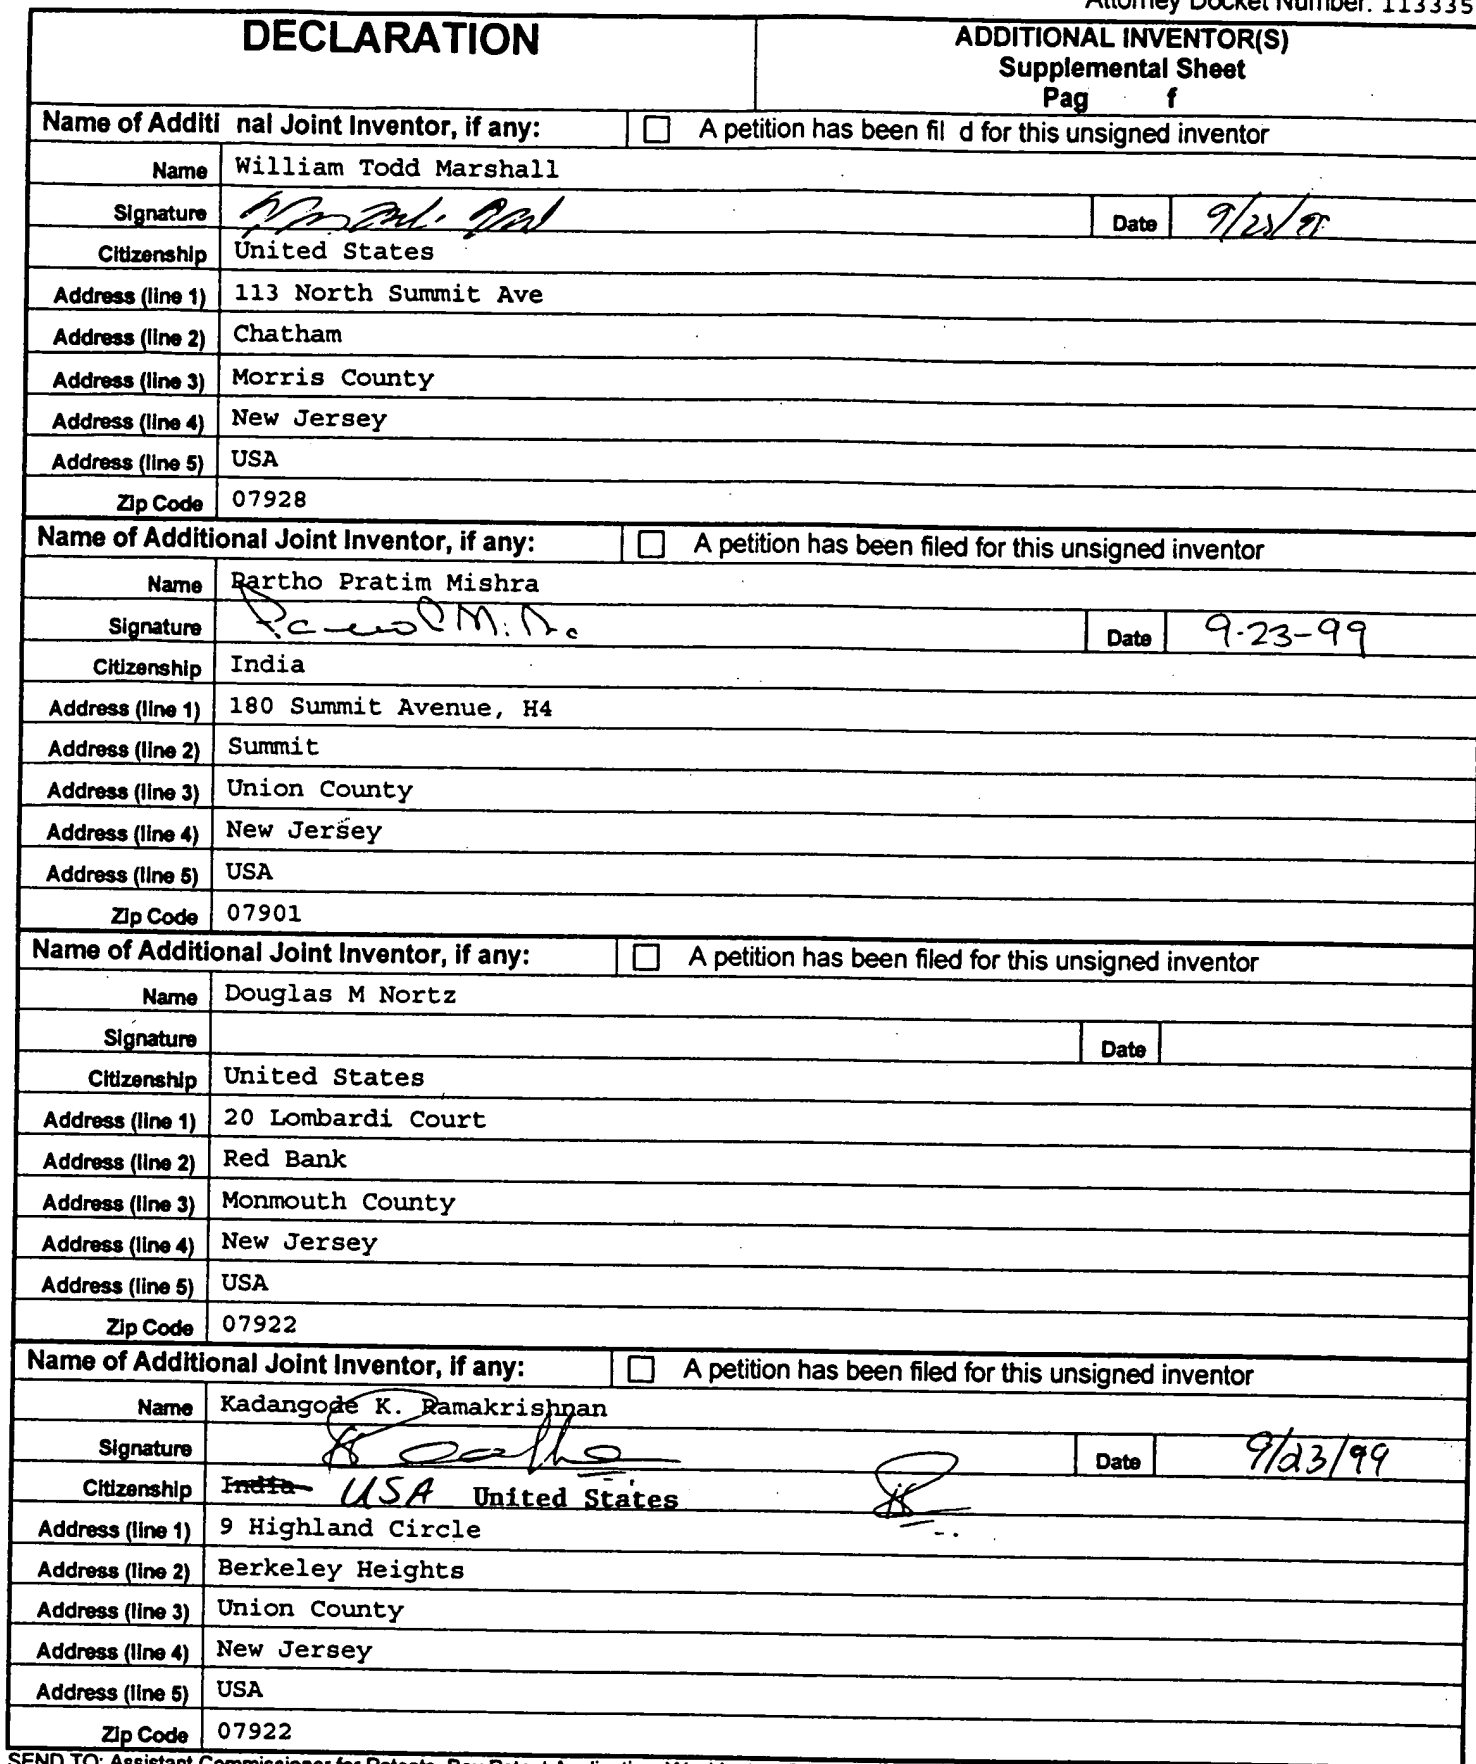 Attorney Docket Number: 113335
DECLARATION
ADDITIONAL INVENTOR(S)
Supplemental Sheet
Pag f
Name of Additi nal Joint Inventor, if any: A petition has been fil d for this unsigned inventor
Name William Todd Marshall
Signature Date
Citizenship United States
Address (line 1) 113 North Summit Ave
Address (line 2) Chatham
Address (line 3) Morris County
Address (line 4) New Jersey
Address (line 5) USA
Zip Code 07928
Name of Additional Joint Inventor, if any: A petition has been filed for this unsigned inventor
Name Partho Pratim Mishra
Signature Date 9-23-99
Citizenship India
Address (line 1) 180 Summit Avenue, H4
Address (line 2) Summit
Address (line 3) Union County
Address (line 4) New Jersey
Address (line 5) USA
Zip Code 07901
Name of Additional Joint Inventor, if any: A petition has been filed for this unsigned inventor
Name Douglas M Nortz
Signature Date
Citizenship United States
Address (line 1) 20 Lombardi Court
Address (line 2) Red Bank
Address (line 3) Monmouth County
Address (line 4) New Jersey
Address (line 5) USA
Zip Code 07922
Name of Additional Joint Inventor, if any: A petition has been filed for this unsigned inventor
Name Kadangode K. Ramakrishnan
Signature Date 9/23/99
Citizenship India USA United States
Address (line 1) 9 Highland Circle
Address (line 2) Berkeley Heights
Address (line 3) Union County
Address (line 4) New Jersey
Address (line 5) USA
Zip Code 07922
SEND TO: Assistant Commissioner for Patents, Box Patent Application,